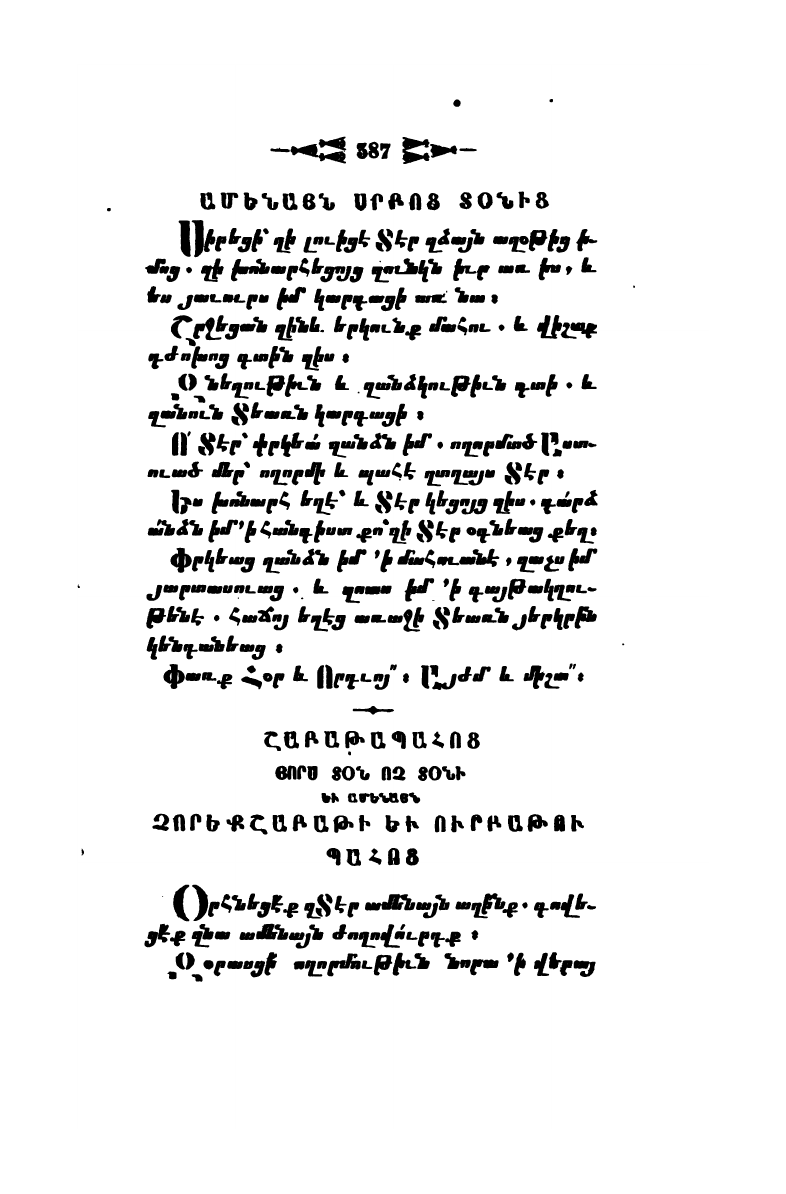 387
ԱՄԵՆԱՅՆ ՍՐԲՈՑ ՏՕՆԻՑ
Սիրեցի՝ զի լուիցէ Տէր զձայն աղօթից ի-
մոց. զի խոնարհեցոյց զունկն իւր առ իս, և
ես յաւուրս իմ կարդացի առ նա։
Շրջեցան զինև երկունք մահու. և վիշտք
դժոխոց գտին զիս։
Զնեղութիւն և զանձկութիւն գտի. և
զանուն Տեառն կարդացի։
Ո՛ Տէր՝ փրկեա՛ զանձն իմ. ողորմած Աստ-
ուած մեր՝ ողորմի և պահէ զտղայս Տէր։
Ես խոնարհ եղէ՝ և Տէր կեցոյց զիս. դարձ
անձն իմ ՚ի հանգիստ քո՝ զի Տէր օգնեաց քեզ։
Փրկեաց զանձն իմ ՚ի մահուանէ, զաչս իմ
յարտասուաց. և զոտս իմ ՚ի գայթակղու-
թենէ. հաճոյ եղէց առաջի Տեառն յերկրին
կենդանեաց։
Փառք Հօր և Որդւոյ՞։ Այժմ և միշտ՞։
ՇԱԲԱԹԱՊԱՀՈՑ
ՅՈՐՍ ՏՕՆ ՈՉ ՏՕՆԻ
ԵՒ ԱՄԵՆԱՅՆ
ՉՈՐԵՔՇԱԲԱԹԻ ԵՒ ՈՒՐԲԱԹՈՒ
ՊԱՀՈՑ
Օրհնեցէք զՏէր ամենայն ազինք. գովե-
ցէք զնա ամենայն ժողովուրդք։
Զօրասցի ողորմութիւն նորա ՚ի վերայ